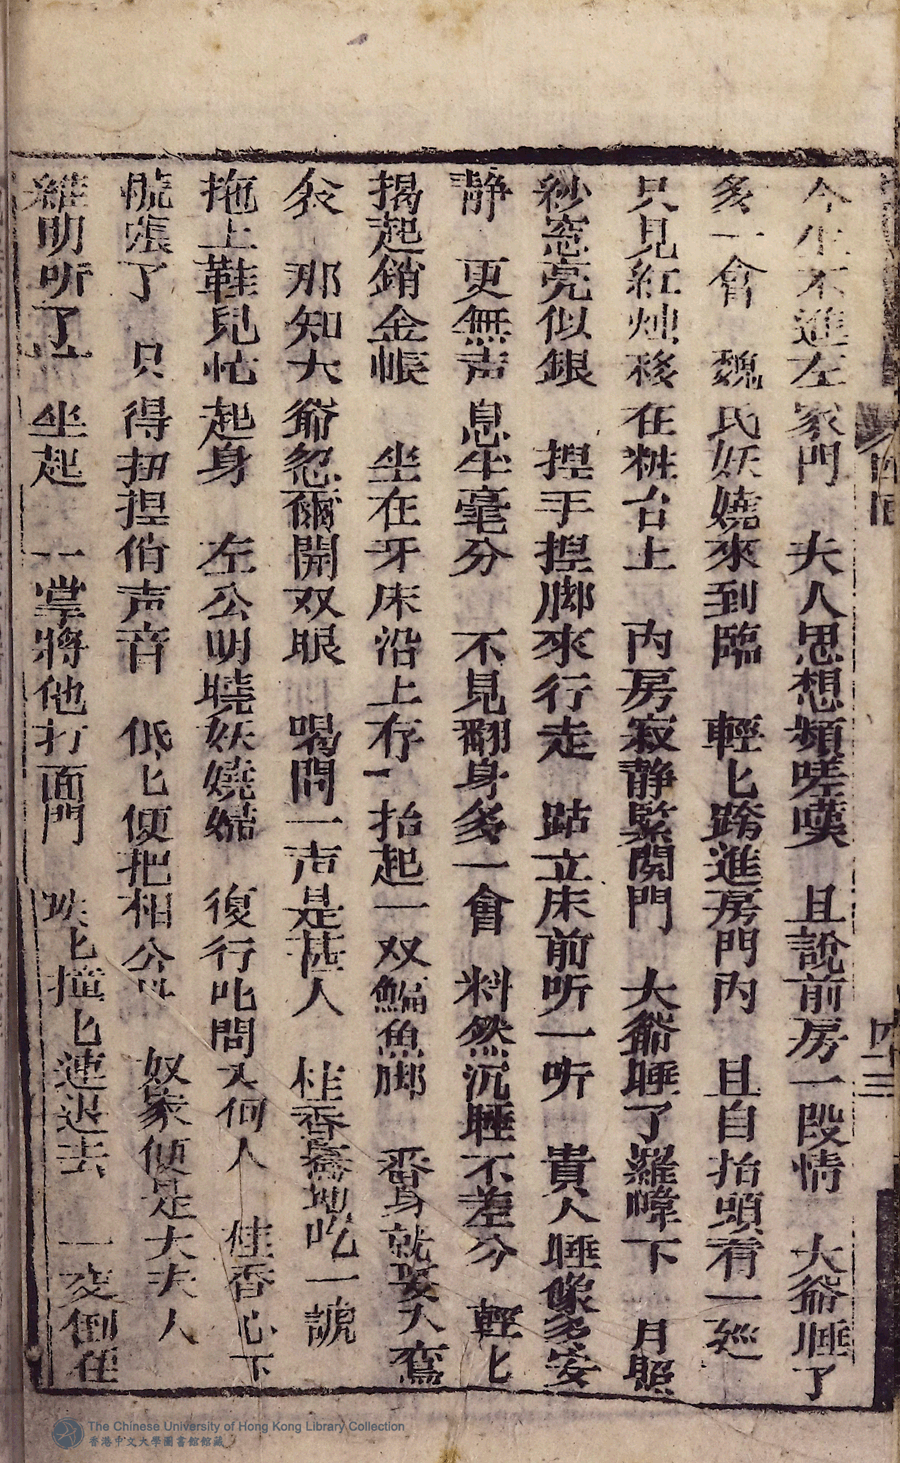 今生不進左家門　夫人思想頻嗟嘆　且說前房一段情　大爺睡了
多一會　魏氏妖嬈來到臨　輕匕跨進房門內　且自抬頭看一巡
只見紅燭移在粧台上　內房寂静緊関門　大爺睡了羅幃下　月照
紗窓亮似銀　揑手揑脚來行走　跕立床前听一听　貴人睡像多安
静　更無声息半毫分　不見翻身多一會　料然沉睡不差分　輕匕
揭起銷金帳　坐在牙床沿上存　抬起一双鯿魚脚　番身就要入鴛
衾　那知大爺忽爾開双眼　喝問一声是甚人　桂香驀地吃一諕
拖上鞋兒忙起身　左公明曉妖嬈婦　復行叱問又何人　桂香心下
慌張了　只得扭捏俏声音　低匕便把相公叫　奴家便是大夫人
維明听了 坐起　一掌將他打面門　跌匕撞匕連退去　一交倒在
四十三
The Chinese University of Hong Kong Library Collection
香港中文大學圖書館館藏